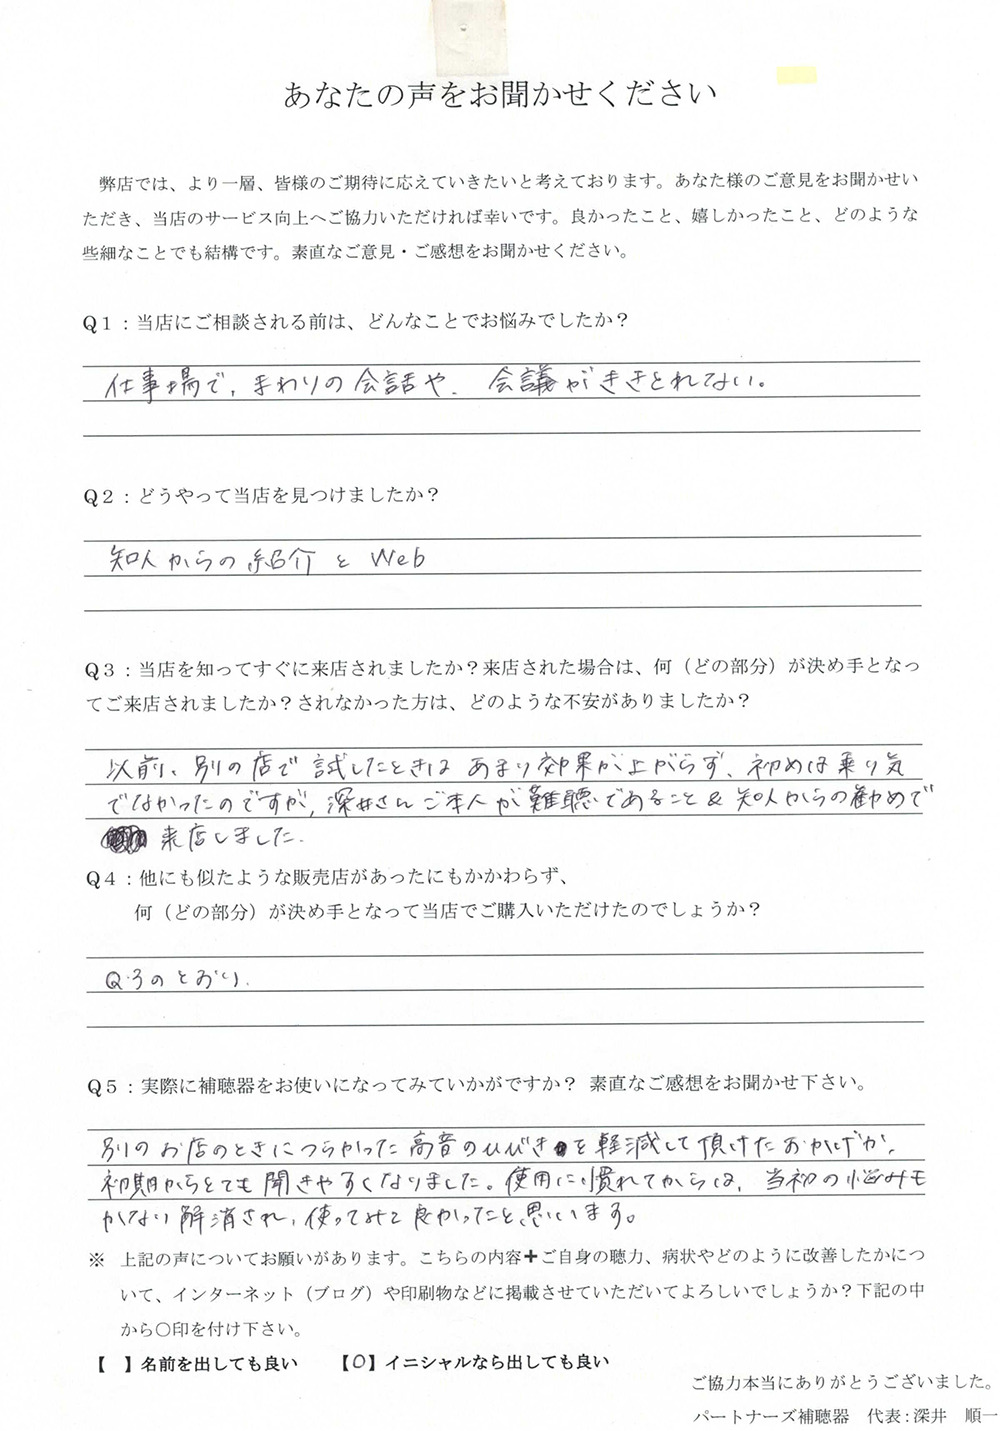 あなたの声をお聞かせください
弊店では、より一層、皆様のご期待に応えていきたいと考えております。あなた様のご意見をお聞かせい
ただき、当店のサービス向上へご協力いただければ幸いです。良かったこと、嬉しかったこと、どのような
些細なことでも結構です。素直なご意見・ご感想をお聞かせください。
Q1：当店にご相談される前は、どんなことでお悩みでしたか？
仕事場で、まわりの会話や、会議がききとれない。
Q2：どうやって当店を見つけましたか？
知人からの紹介とWeb
Q3：当店を知ってすぐに来店されましたか？来店された場合は、何（どの部分）が決め手となっ
てご来店されましたか？されなかった方は、どのような不安がありましたか？
以前、別の店で試したときはあまり効果が上がらず、初めは乗り気
でなかったのですが、深井さんご本人が難聴であること＆知人からの勧めで
来店しました.
Q4：他にも似たような販売店があったにもかかわらず、
何（どの部分）が決め手となって当店でご購入いただけたのでしょうか？
Q.3のとおり.
Q5：実際に補聴器をお使いになってみていかがですか？ 素直なご感想をお聞かせ下さい。
別のお店のときにつらかった高音のひびきを軽減して頂けたおかげか、
初期からとても聞きやすくなりました。使用に慣れてからは、当初の悩みも
かなり解消され、使ってみて良かったと思います。
※ 上記の声についてお願いがあります。こちらの内容＋ご自身の聴力、病状やどのように改善したかにつ
いて、インターネット（ブログ）や印刷物などに掲載させていただいてよろしいでしょうか？下記の中
から〇印を付け下さい。
【　】名前を出しても良い　　【〇】イニシャルなら出しても良い
ご協力本当にありがとうございました。
パートナーズ補聴器　代表：深井　順一